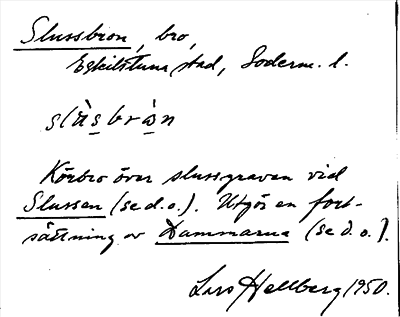 Slussbron, bro,
Eskilstuna stad, Söderm. l.
slàsbrὼn
Körbro över slussgraven vid
Slussen (se d. o.). Utgör en fort-
sättning av Dammarna (se d. o.).
Lars Hellberg 1950.